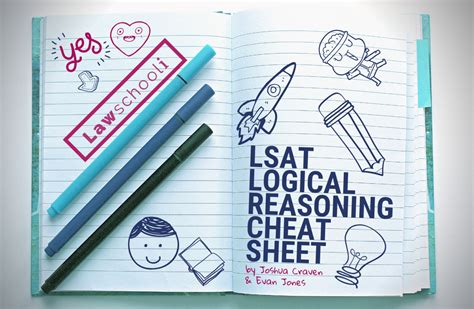 yes
Lawschooli
LSAT
LOGICAL
REASONING
CHEAT
SHEET
by Joshua Craven
& Evan Jones